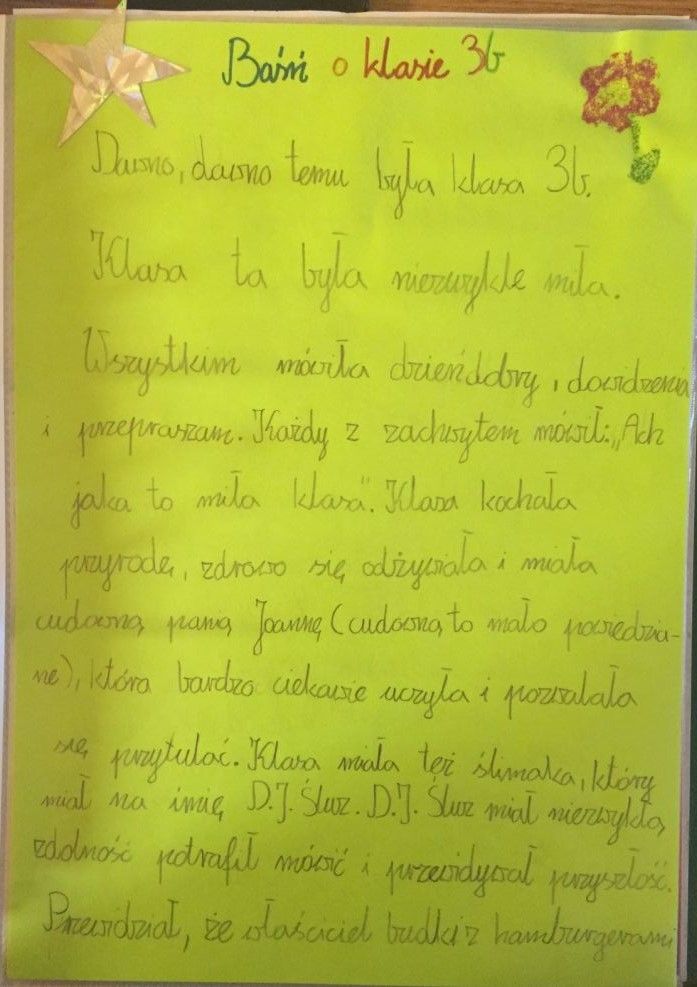 Baśń o klasie 3b
Dawno, dawno temu była klasa 3b.
Klasa ta była niezwykle miła.
Wszystkim mówiła dzieńdobry, dowidzenia
i przepraszam. Każdy z zachwytem mówił: „Ach
jaka to miła klasa". Klasa kochała
przyrodę, zdrowo się odżywiała i miała
cudowną panią Joannę (cudowną to mało powiedzia-
ne), która bardzo ciekawie uczyła i pozwalała
się przytulać. Klasa miała też ślimaka, który
miał na imię D.J. Śluz. D.J. Śluz miał niezwykłą
zdolność potrafił mówić i przewidywał przyszłość.
Przewidział, że właściciel budki z hamburgerami